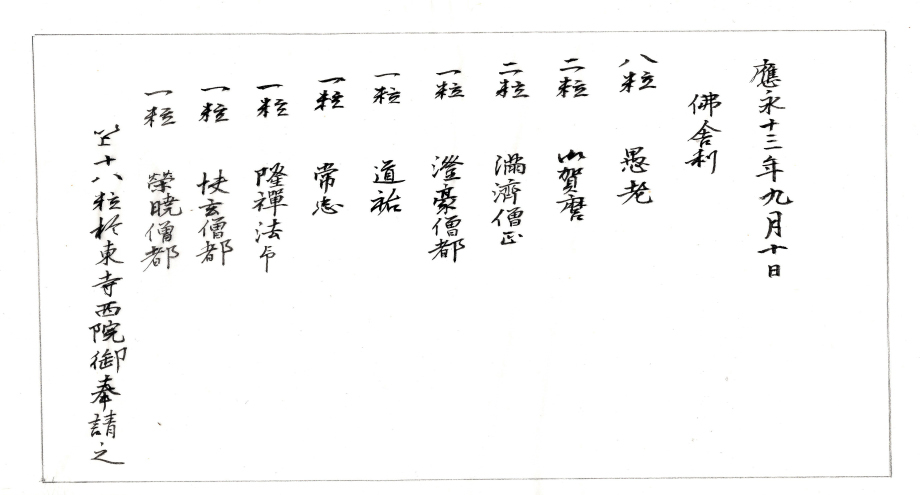 應永十三年九月十日
佛舎利
八粒 愚老
二粒 御賀麿
二粒 滿濟僧正
一粒 澄豪僧都
一粒 道祐
一粒 常忠
一粒 隆禪法印
一粒 快玄僧都
一粒 榮曉僧都
以上十八粒於東寺西院御奉請之